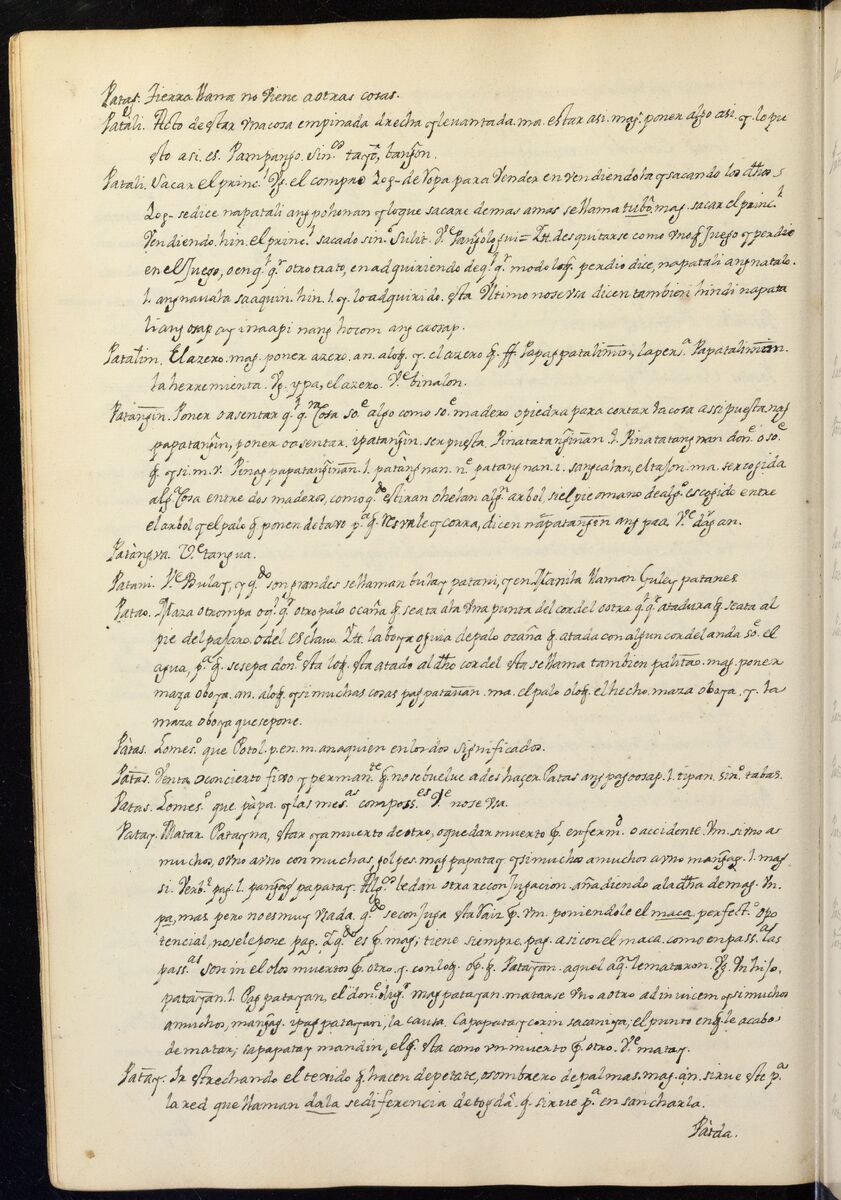 Patag. Tierra llana no viene a otras cosas.
Patali. Acto de estar una cosa empinada drecha y levantada. ma. estar asi. mag. poner algo asi. y. lo pu
esto asi. es. Pampango. sin.os tayo, tangon.
Patali. Sacar el princ.l Vg. el compro de ropa para vender en vendiendola y sacando los dhos
se dice napatali ang pohonan y lo que sacare demas a mas se llama tubo. mag. sacar el princ.l
vendiendo. hin. el princ.l sacado sin.o sulit. V.e desquitarse como uno q juega y perdio
en el Juego, o en q.l q.r otro trato, en adquiriendo de q.l q.r modo lo q. perdio dice, napatali ang natalo.
l. ang navala sa aquin. hin. l. y. lo adquirido. esta ultimo no se usa dicen tambien hindi napata
li ang osap ay inaapi nang hocom ang caosap.
Patalim. El azero. mag. poner azero. an. aloq. y. el azero q. papagpatalimin, la pers.a Papatalimin.
la herremienta. Vg. ypa, el azero. V.e binalon.
Patangin. Poner o asentar q.l q.ra cosa so.e algo como so.e madero o piedra para cortar la cosa assi puesta. nag
papatangin, poner o asentar. ipatangin. ser puesta. Pinatatanginan. l. Pinatatangnan don.e o so.e
q. y si. m. v. Pinagpapatanginan. l. patangnan. n.e patangnan. i. sangcalan, el tajon. ma. ser cogida
alg.a cosa entre dos maderos, como q.do estiran o halan alg.n arbol, si el pie o mano de alg.o es cogido entre
el arbol y el palo q. ponen debaxo p.a q. resvale y corra, dicen napatangin ang paa. V.e dangan.
Patangva. V.e tangua.
Patani. V.e Bulay, y q.do son grandes se llaman bulay patani, y en Manila llaman Gulay patanes
Patao. Maza o trompa o q.l q.r otro palo o caña q. se ata a la una punta del cordel o otra q.l q.r atadura q. se ata al
pie del pajaro o del esclavo. Itt. la boya o guia de palo o caña q. atada con algun cordel anda so.e el
agua, p.a q. se sepa don.e esta lo q. esta atado al dho cordel esta se llama tambien palitao. mag. poner
maza o boya. an. a lo q. y si muchas cosas pag patauan. ma. el palo o lo q. el hecho maza o boya, y. la
maza o boya que se pone.
Patas. Lo mes.o que Potol. p. en. m. an a quien en lo dos significados.
Patas. Venta o concierto fixo y perman.te q. no se buelve a deshacer Patas ang pag oosap. l. tipan. sin.o tabas.
Patas. Lo mes.o que papa. y las mes.as composs.es q.e no se usa.
Patay. Matar. Patayna, estar ya muerto de otro, o quedar muerto q. enferm.d o accidente. Vm. si uno a s
muchos, o uno a uno con muchas golpes. mag papatay y si muchos a muchos o uno mangag. l. mag
si. Verb.l pag. l. pangag papatay. Alg.os le dan otra reconjugacion añadiendo a la dha de mag. Vn.
pa, mas pero no es muy usada. q.do se conjuga esta raiz q. vm. poniendole el maca. perfect.o o po
tencial, no se le pone pag. Y q.do es q. mag; tiene siempre pag. asi con el maca. como en pass.a las
pass.as son in el o los muertos q. otro. y. con lo q. op. q. Patayan. aquel a q.n le mataron. Vg. Un hijo,
patayan. l. Pag patayan, el don.e o lug.r mag patayan. matarse uno a otro ad invicem y si muchos
a muchos, mangag. ipag patayan, la causa. Capapatay co rin sa caniya, el punto en q. le acabo
de matar; sapapatay mandin, el q. esta como un muerto q. otro. V.e matay.
Patay. Ir estrechando el texido q. hacen de petate, o sombrero de palmas. mag. in. sirve este p.a
la red que llaman dala se diferencia de q. sirve p.a ensancharla.
Patda.